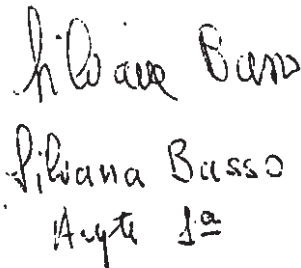 Silvana Basso
Silvana Basso
Aayte 1ª